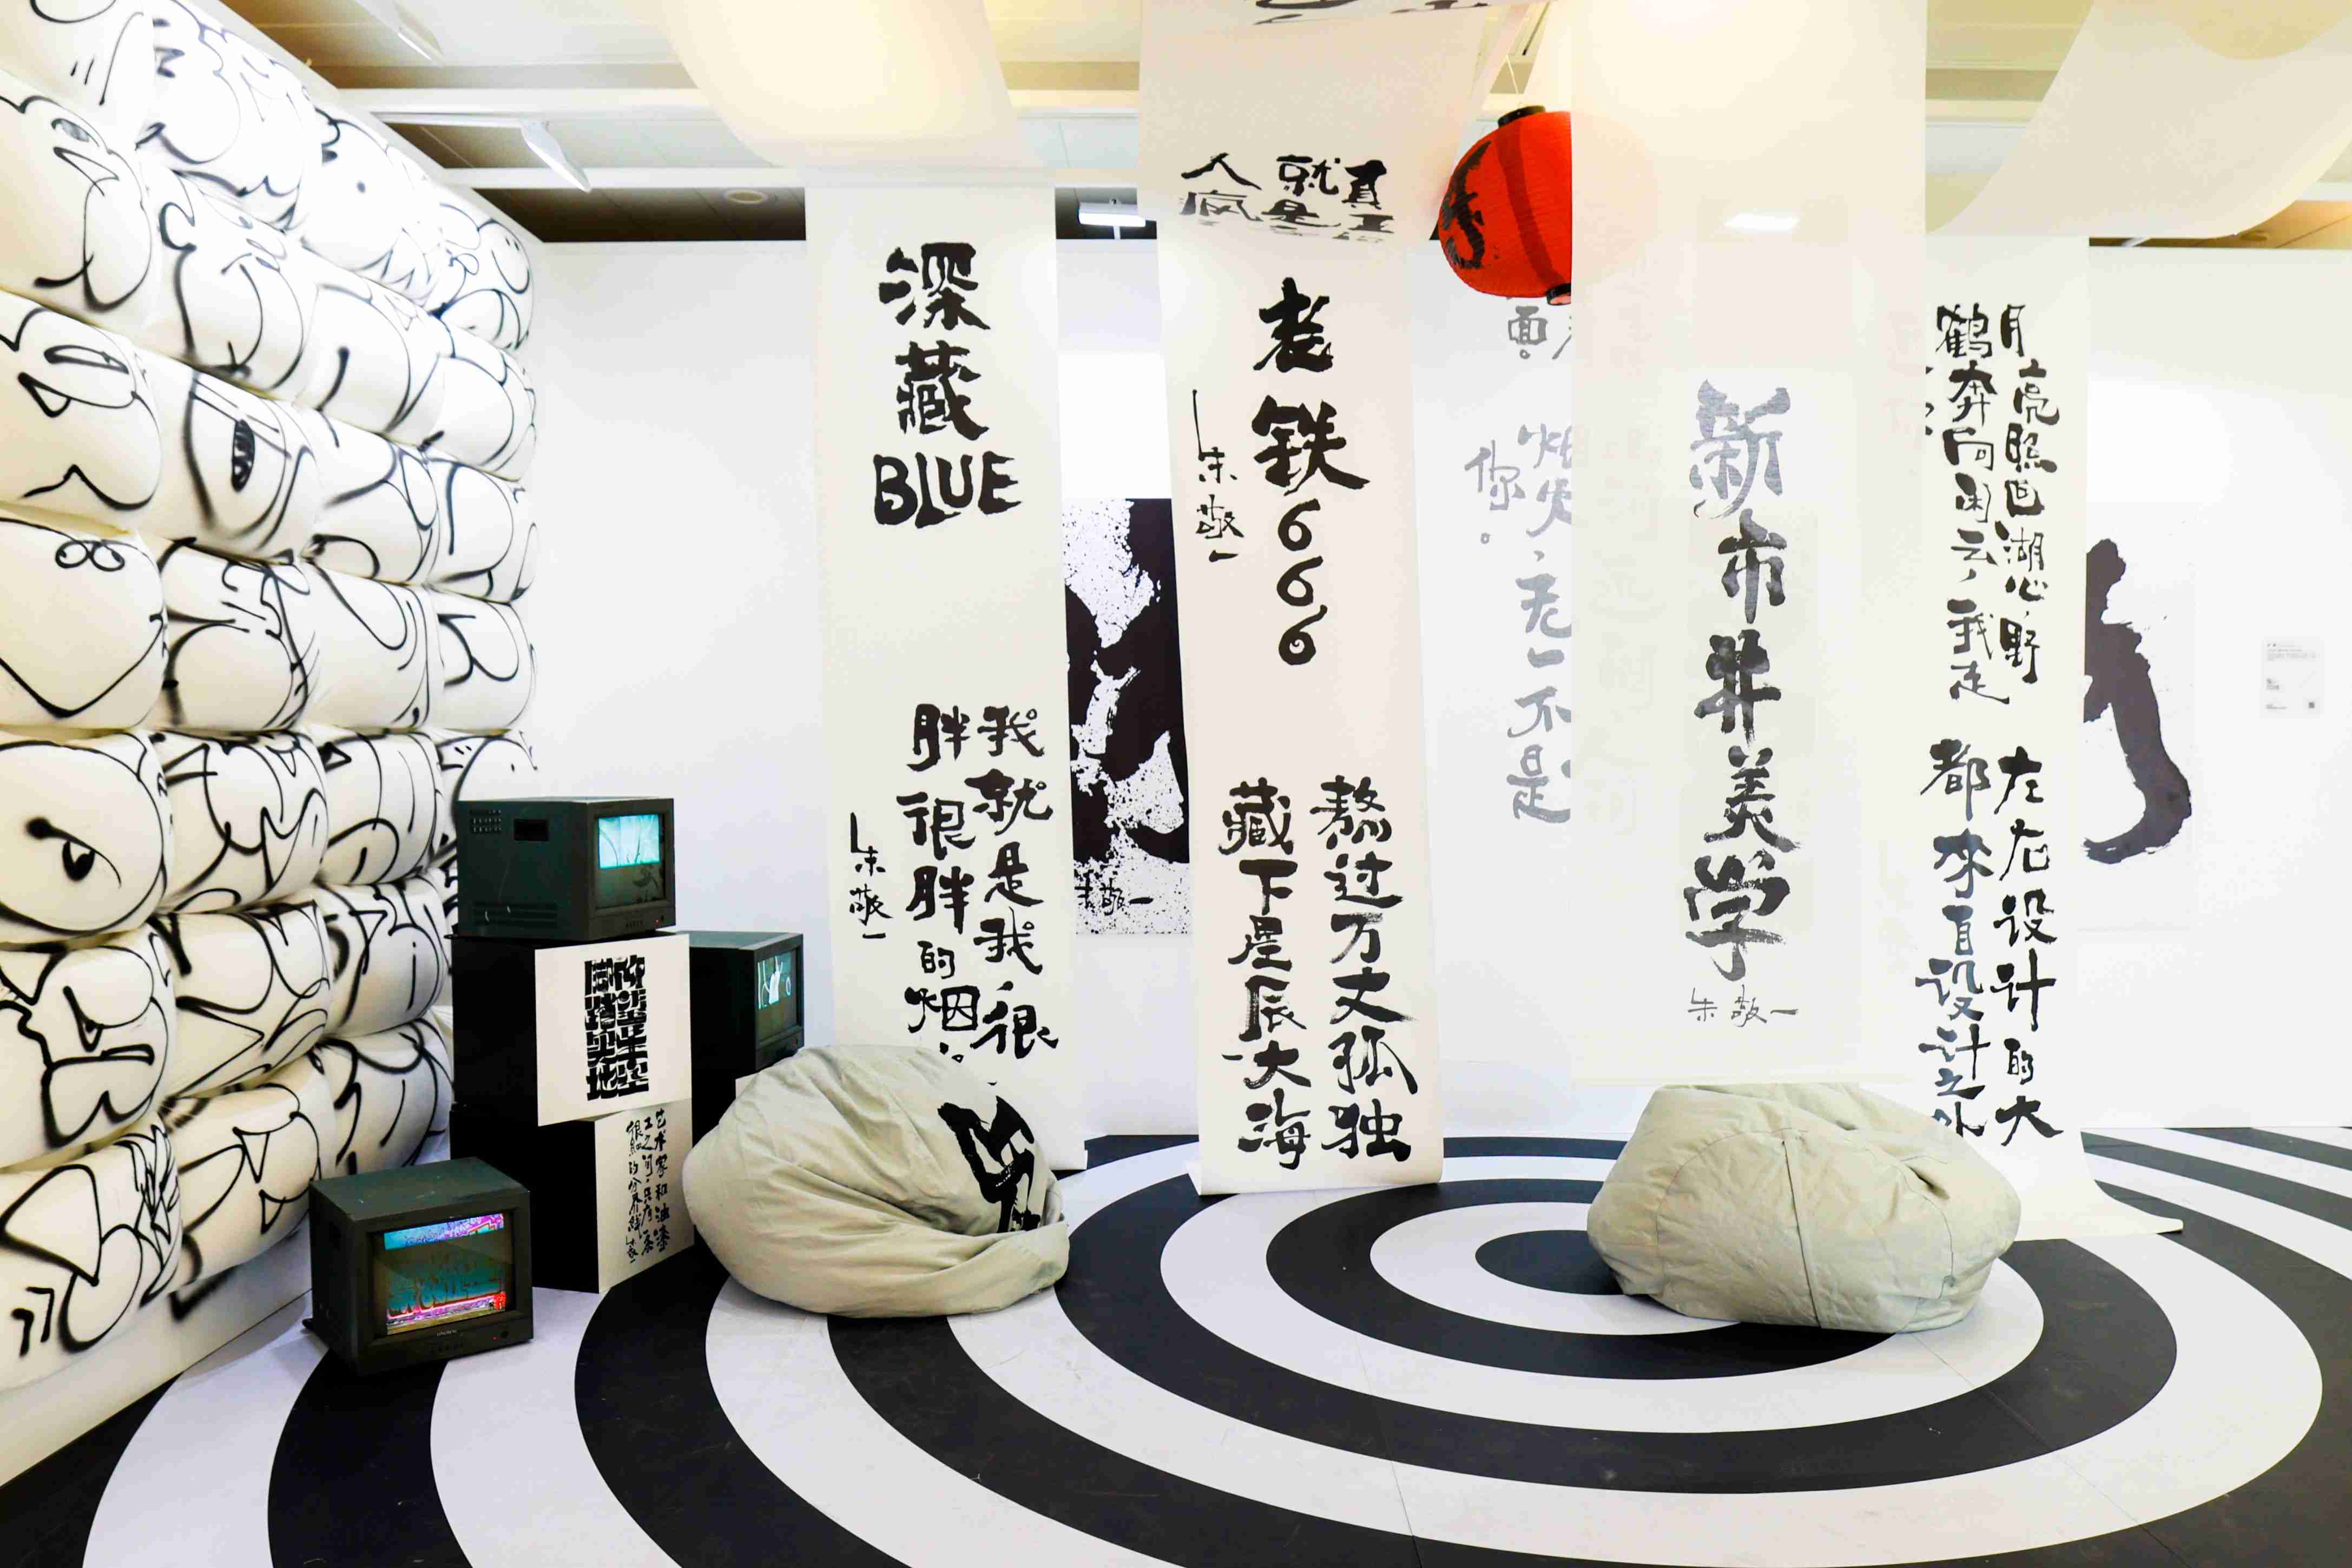 深藏
BLUE
我就是我，很
胖很胖的烟
朱敬一
敬一
真正
就是
人疯
老铁666
朱敬一
熬过万丈孤独
藏下星辰大海
面
烟火，无一不是
你。
新市井美学
朱敬一
月亮照回湖心，野
鹤奔向闲云，我走
左右设计的大
都来自设计之外
仰望星空
脚踏实地
艺术家和油漆